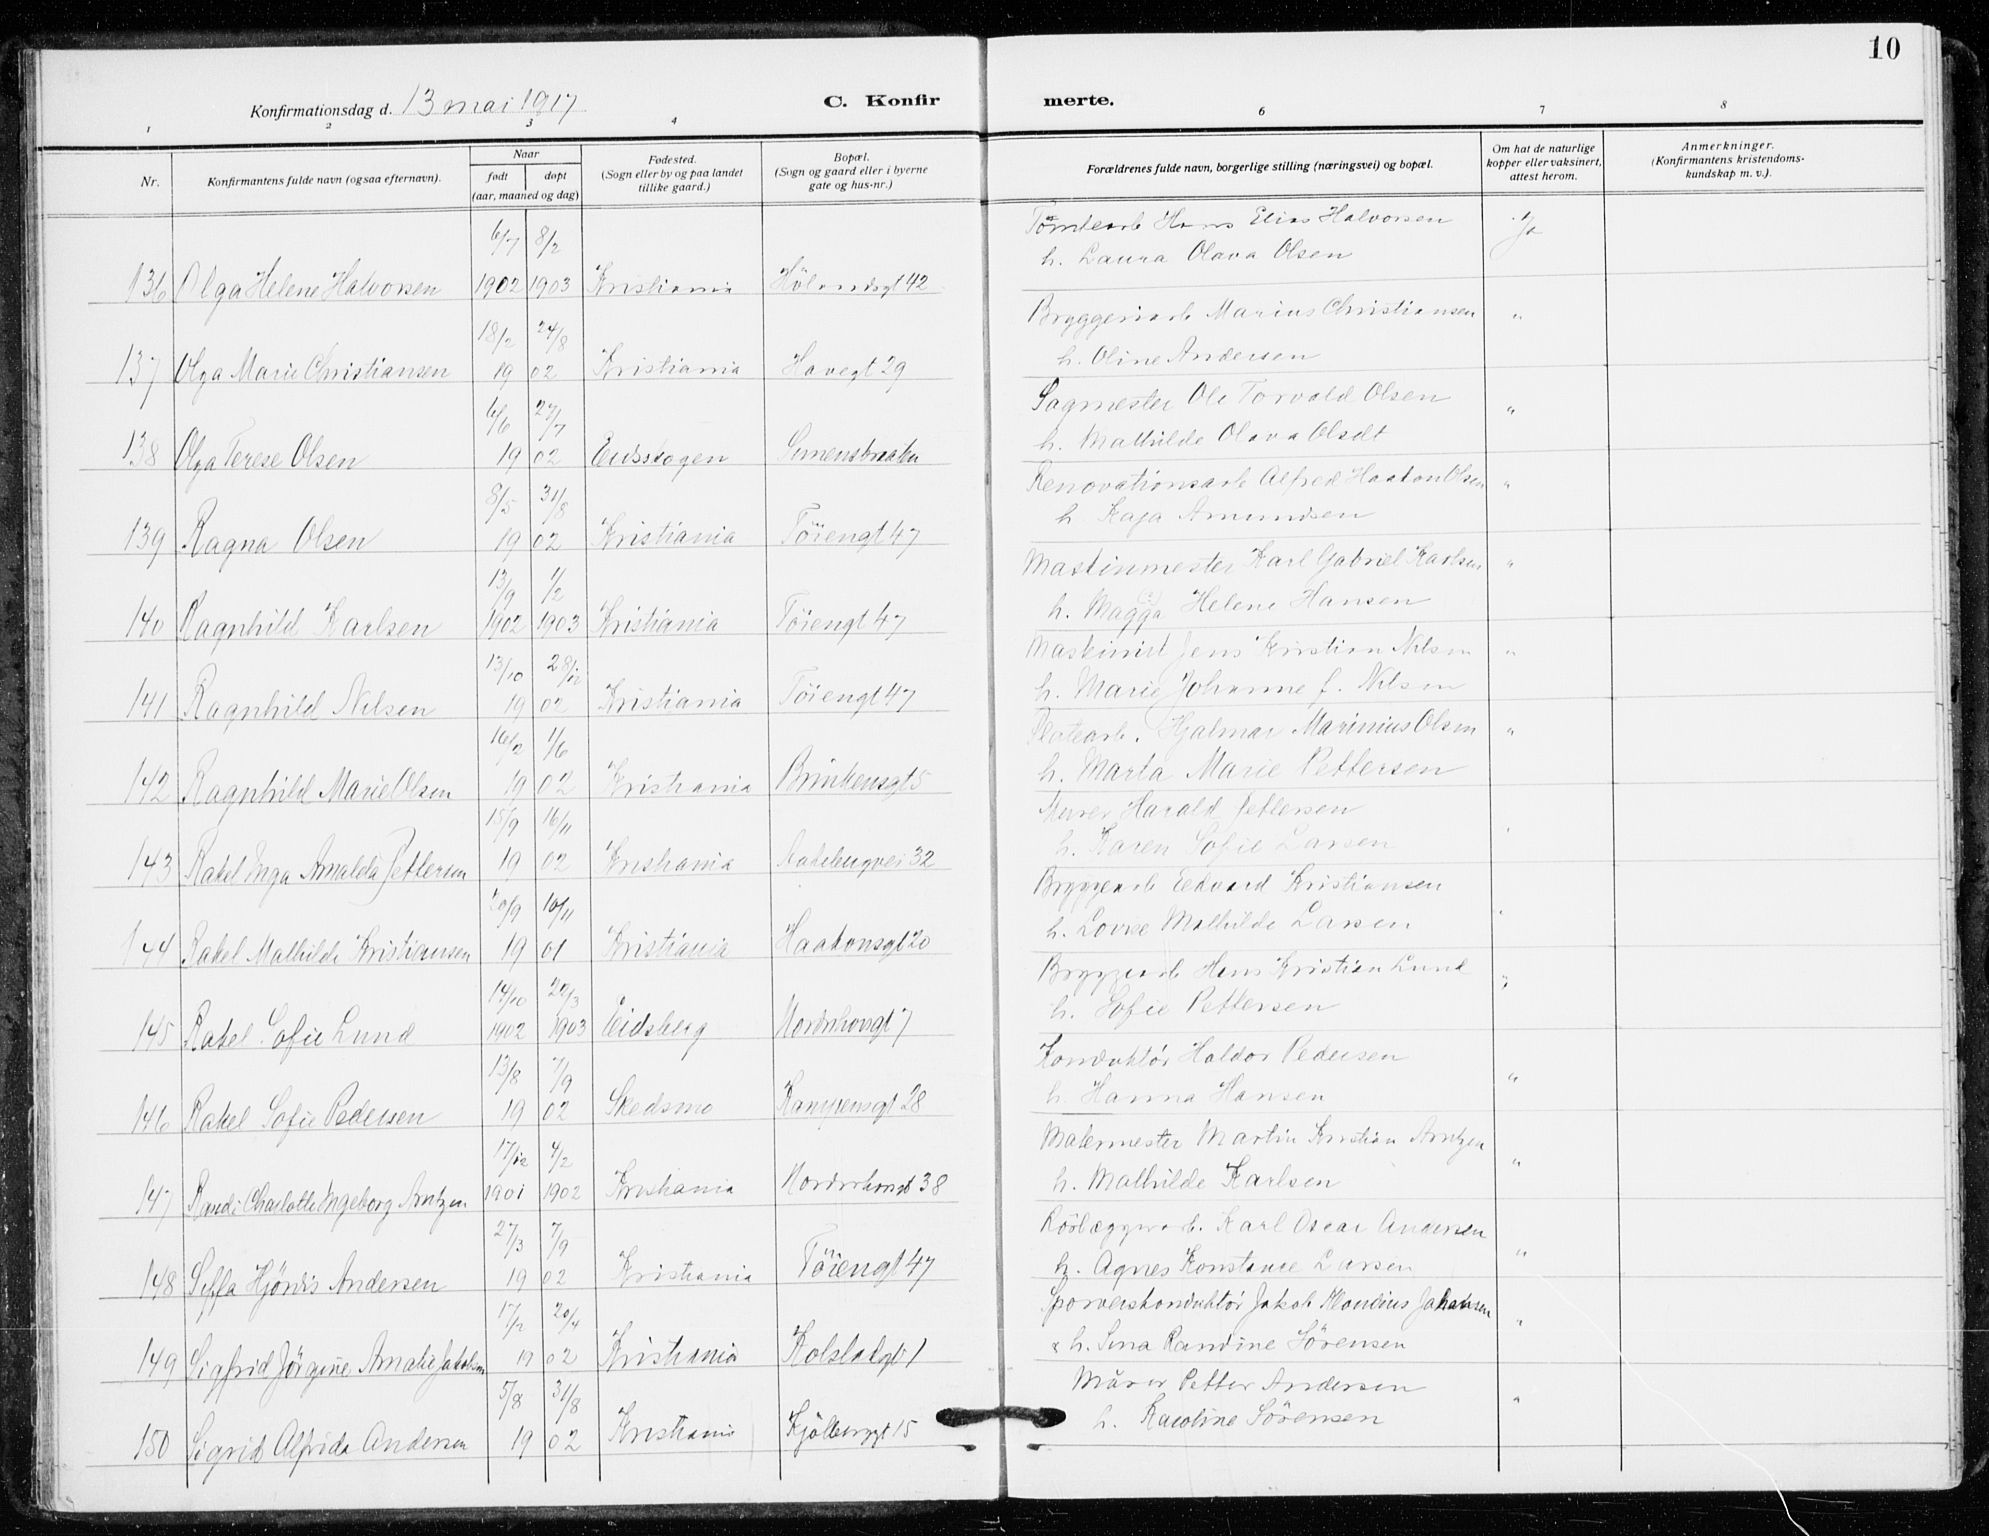 10
Konfirmationsdag d. 13 mai 1917
C. Konfirmerte.
1 2 3 4 6 7 8
Nr.
Konfirmantens fulde navn (ogsaa efternavn).
Naar
født døpt
(aar, maaned og dag)
Fødested.
(Sogn eller by og paa landet
tillike gaard.)
Bopæl.
(Sogn og gaard eller i byerne
gate og hus-nr.)
Forældrenes fulde navn, borgerlige stilling (næringsvei) og bopæl.
Om hat de naturlige
kopper eller vaksinert,
attest herom.
Anmerkninger.
(Konfirmantens kristendoms-
kundskap m. v.).
6/7 8/2 Tomtearb Hans Elias Halvorsen Ja
h. Laura Olava Olsen
136 Olga Helene Halvorsen 1902 1903 Kristiania Hölandsgt 42
18/2 24/8 Bryggeriarb Marius Christiansen "
h. Oline Andersen
137 Olga Marie Christiansen 19 02 Kristiania Havegt 29
6/6 27/7 Sagmester Ole Torvald Olsen "
h. Mathilde Olava Olsdt
138 Olga Terese Olsen 19 02 Eidsskogen Simensbraaten
8/5 31/8 Renovationsarb Alfred Haakon Olsen "
h. Kaja Amundsen
139 Ragna Olsen 19 02 Kristiania Töiengt 47
13/9 1/2 Maskinmester Karl Gabriel Karlsen "
h. Magga Helene Hansen
140 Ragnhild Karlsen 1902 1903 Kristiania Töiengt 47
13/10 28/12 Maskinist Jens Kristian Nilsen "
h. Marie Johanne f. Nilsen
141 Ragnhild Nilsen 19 02 Kristiania Töiengt 47
16/2 1/6 Platearb. Hjalmar Marinius Olsen "
h. Marta Marie Pettersen
142 Ragnhild Marie Olsen 19 02 Kristiania Brinkensgt 5
15/9 16/11 Murer Harald Pettersen "
h. Karen Sofie Larsen
143 Rakel Inga Amalda Pettersen 19 02 Kristiania Aakebergvei 32
20/9 10/11 Bryggearb Edvard Kristiansen "
h. Lovise Mathilde Larsen
144 Rakel Mathilde Kristiansen 19 01 Kristiania Haakonsgt 20
14/10 22/3 Bryggearb Hans Kristian Lund "
h. Sofie Pettersen
145 Rakel Sofie Lund 1902 1903 Eidsberg Nordrhovgt 7
13/8 7/9 Konduktör Haldor Pedersen "
h. Hanna Hansen
146 Rakel Sofie Pedersen 19 02 Skedsmo Kampensgt 28
17/12 4/2 Malermester Martin Kristian Arntzen "
h. Mathilde Karlsen
147 Randi Charlotte Ingeborg Arntzen 1901 1902 Kristiania Nordrehovgt 38
27/3 7/9 Rörlæggerarb. Karl Oscar Andersen "
h. Agnes Konstance Larsen
148 Siffa Hjördis Andersen 19 02 Kristiania Töiengt 47
17/2 20/4 Sporveiskonduktör Jakob Klaudius Jakobsen "
h. Sina Randine Sörensen
149 Sigfrid Jörgine Amalie Jakobsen 19 02 Kristiania Kolstadgt 1
5/8 31/8 Murer Petter Andersen "
h. Karoline Sörensen
150 Sigrid Alfrida Andersen 19 02 Kristiania Kjölberggt 15